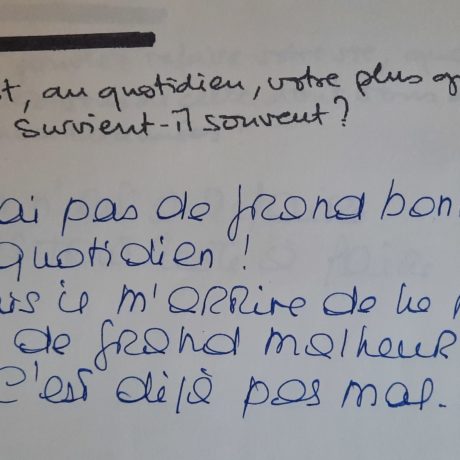 t, au quotidien, votre plus
survient-il souvent?
ai pas de grand bon
quotidien !
is il m'arrive de ne
de grand malheur
c'est déjà pas mal.